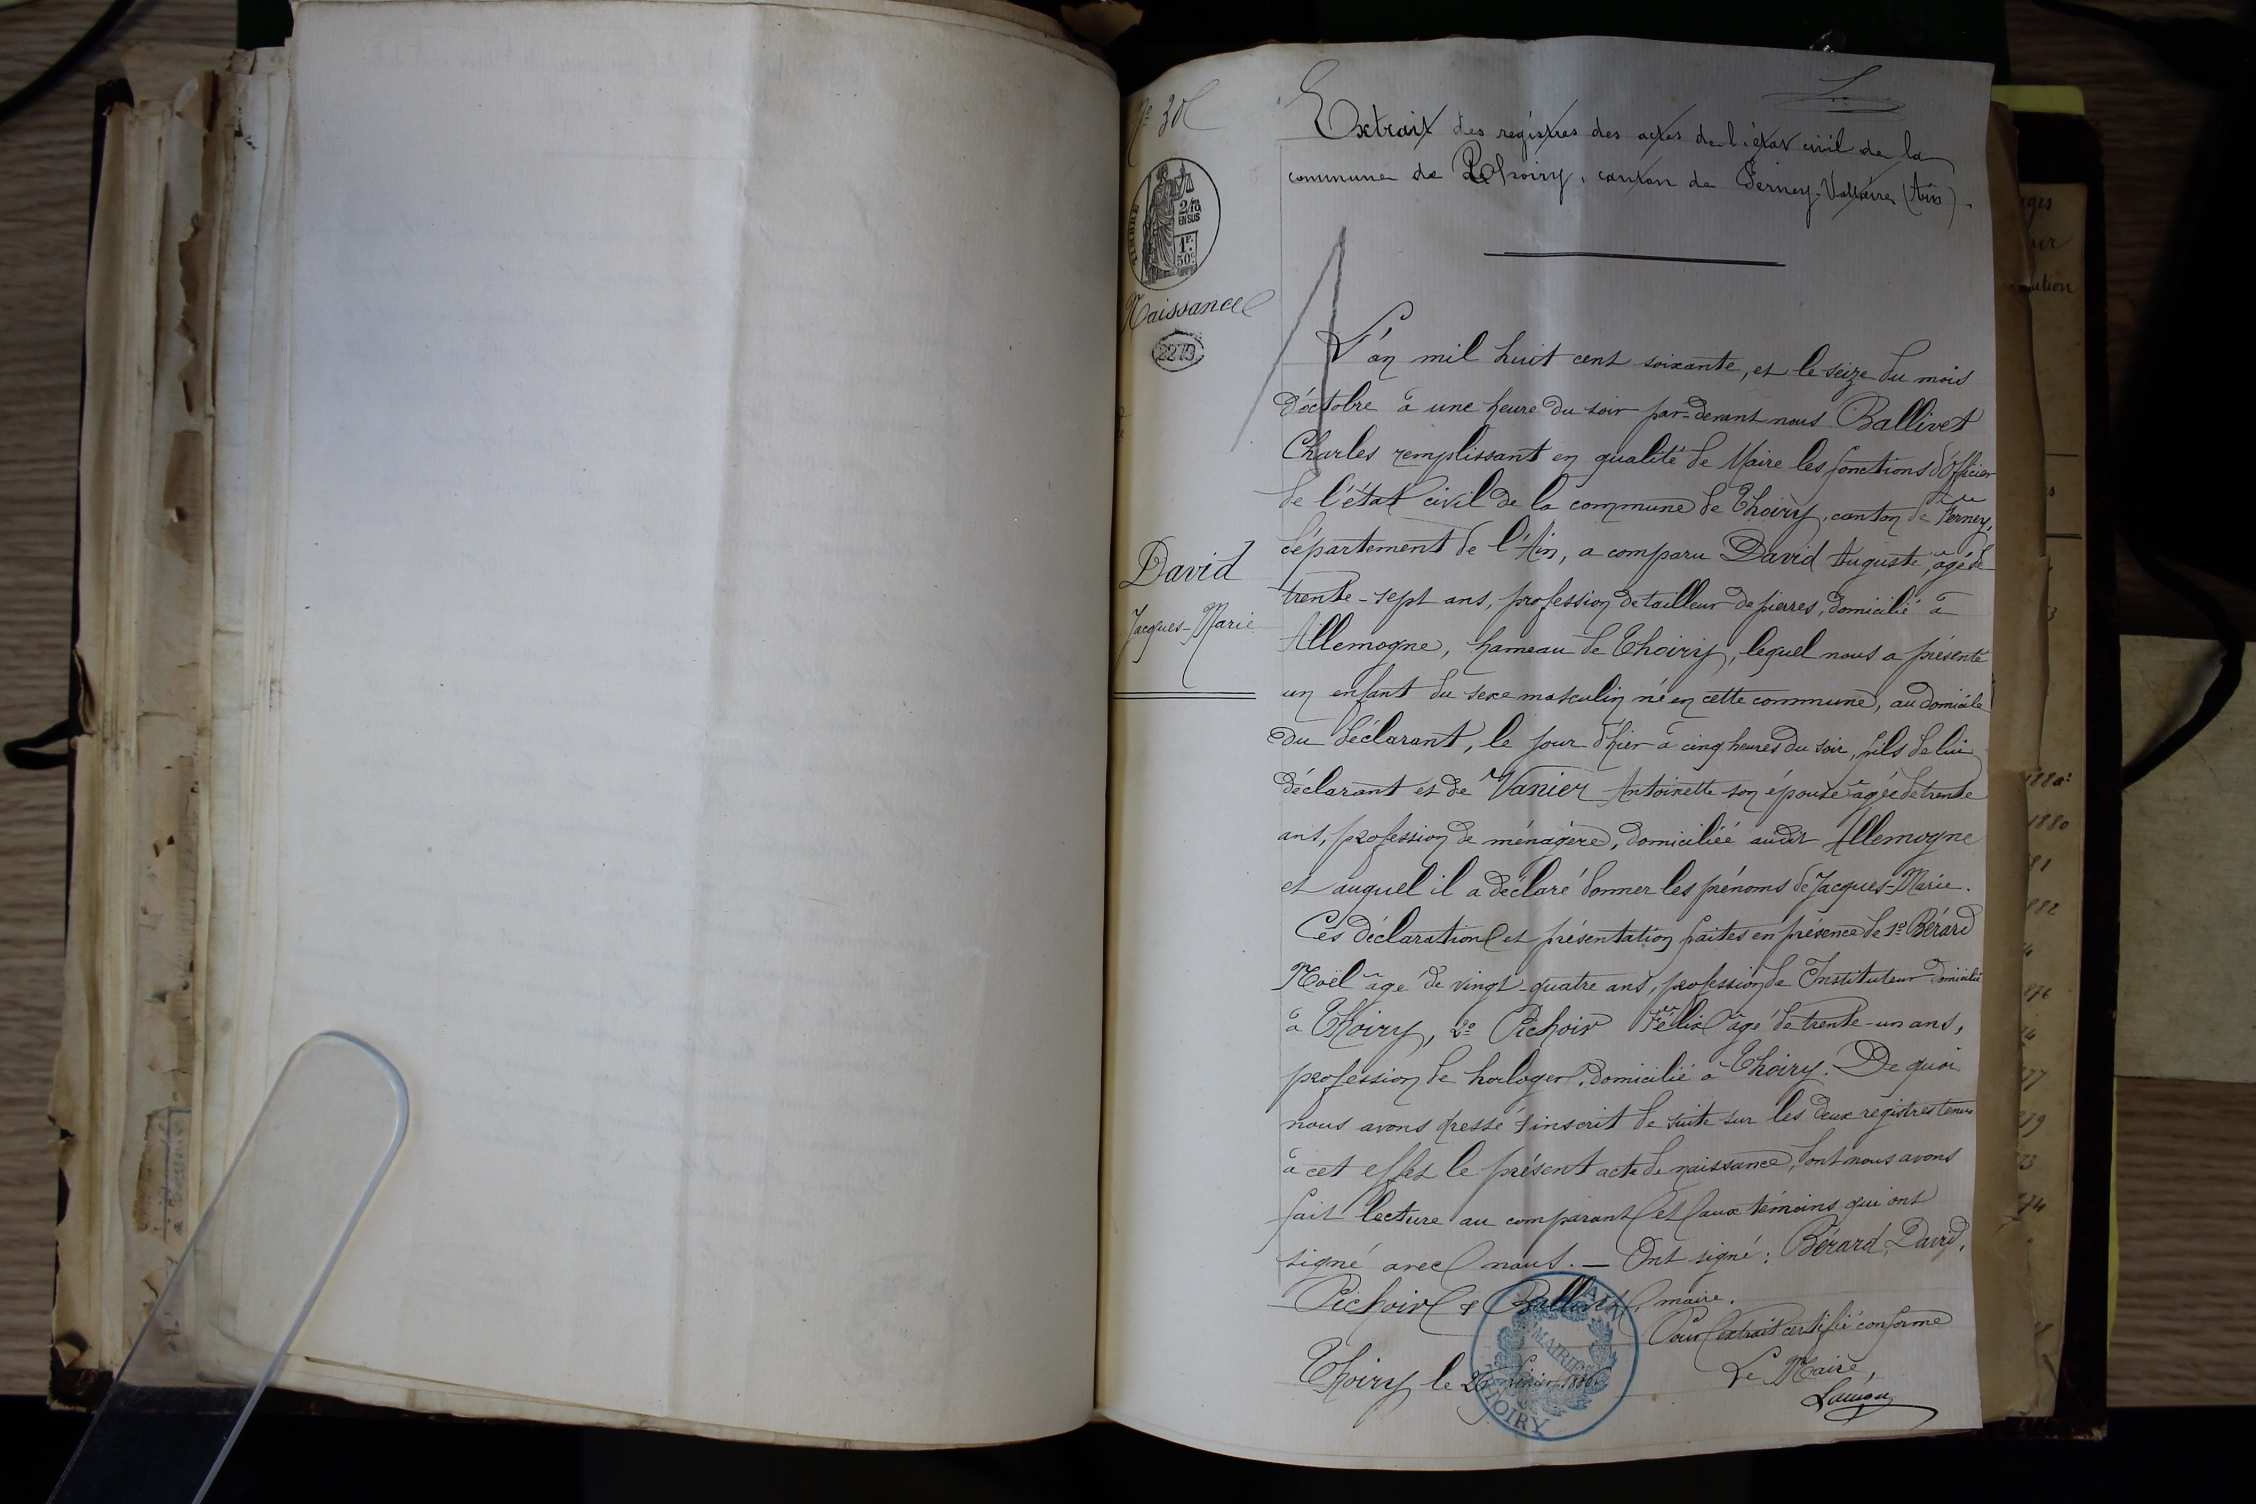 Extrait des registres des actes de l'état civil de la
commune de Thoiry, canton de Ferney-Voltaire (Ain).
TIMBRE
2/10
EN SUS
1F.
50c.
Naissance
2273
L'an mil huit cent soixante, et le seize du mois
d'octobre à une heure du soir par-devant nous Ballivet
Charles remplissant en qualité de Maire les fonctions d'Officier
de l'état civil de la commune de Thoiry, canton de Ferney,
département de l'Ain, a comparu David Auguste, âgé de
trente-sept ans, profession de tailleur de pierres, domicilié à
Allemogne, hameau de Thoiry, lequel nous a présenté
un enfant du sexe masculin né en cette commune, au domicile
du déclarant, le jour d'hier à cinq heures du soir, fils de lui
déclarant et de Vanier Antoinette son épouse âgée de trente
ans, profession de ménagère, domiciliée audit Allemogne
et auquel il a déclaré donner les prénoms de Jacques-Marie.
Ces déclaration et présentation faites en présence de 1º Bérard
Noël âgé de vingt-quatre ans, profession de Instituteur domicilié
à Thoiry, 2º Pichoir Félix âgé de trente-un ans,
profession de horloger, domicilié à Thoiry. De quoi
nous avons dressé & inscrit de suite sur les deux registres tenus
à cet effet le présent acte de naissance, dont nous avons
fait lecture au comparant et aux témoins qui ont
signé avec nous. — Ont signé: Bérard, David,
Pichoir & Ballivet, maire.
Pour extrait certifié conforme
Thoiry le 26
Le Maire,
David
Jacques-Marie
AIN
MAIRIE
THOIRY
1880
1880
81
882
876
77